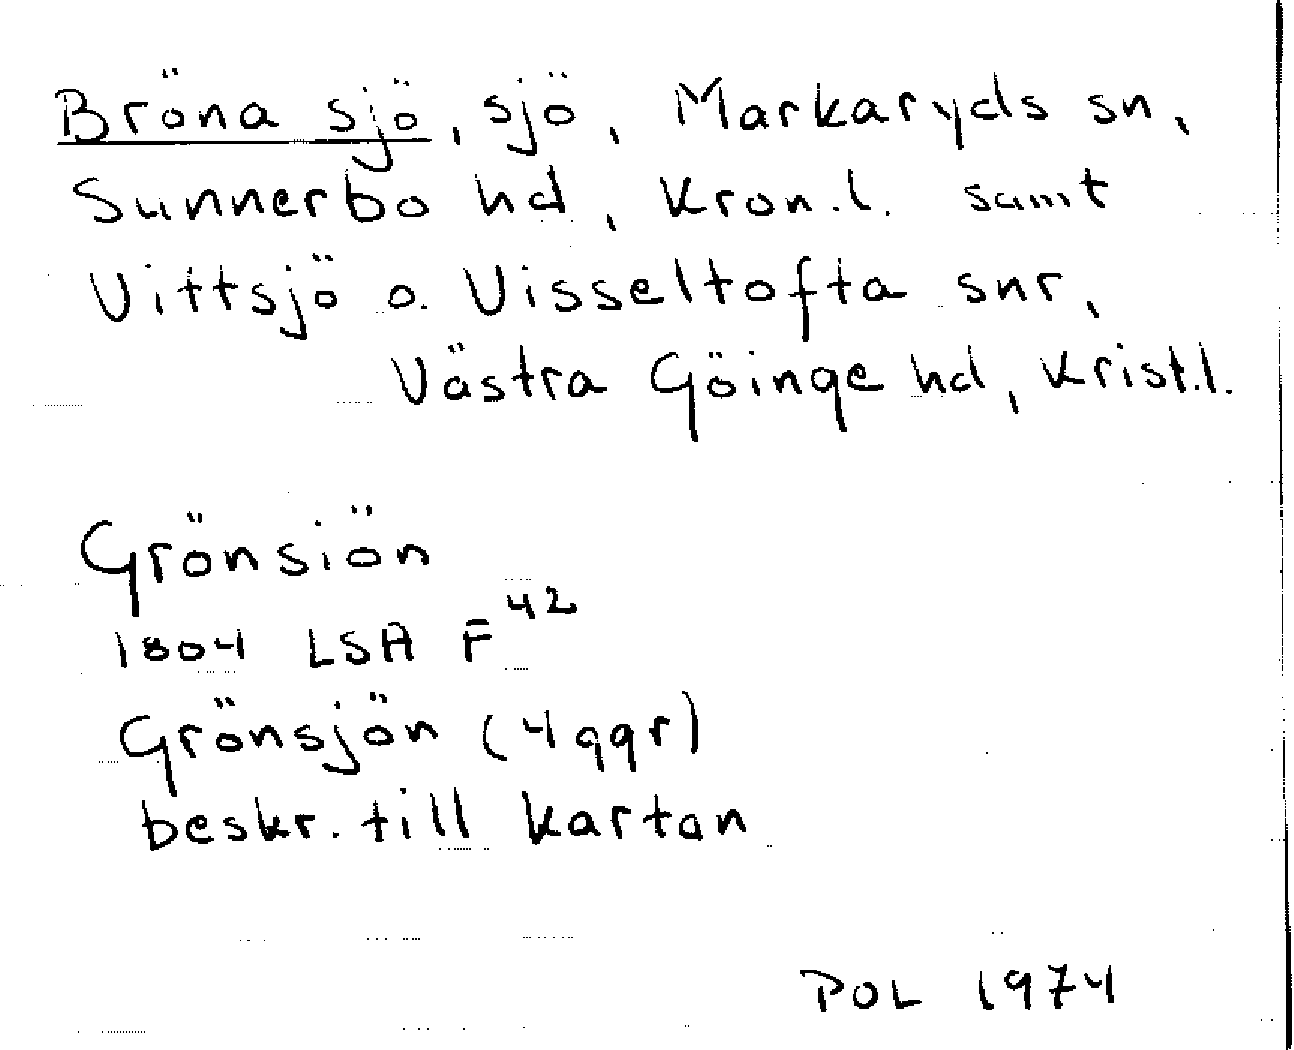 Bröna sjö, sjö, Markaryds sn,
Sunnerbo hd, Kron.l. samt
Vittsjö o. Visseltofta snr,
Västra Göinge hd, Krist.l.
Grönsiön
1804 LSA F42
Grönsjön (4 ggr)
beskr. till kartan
POL 1974